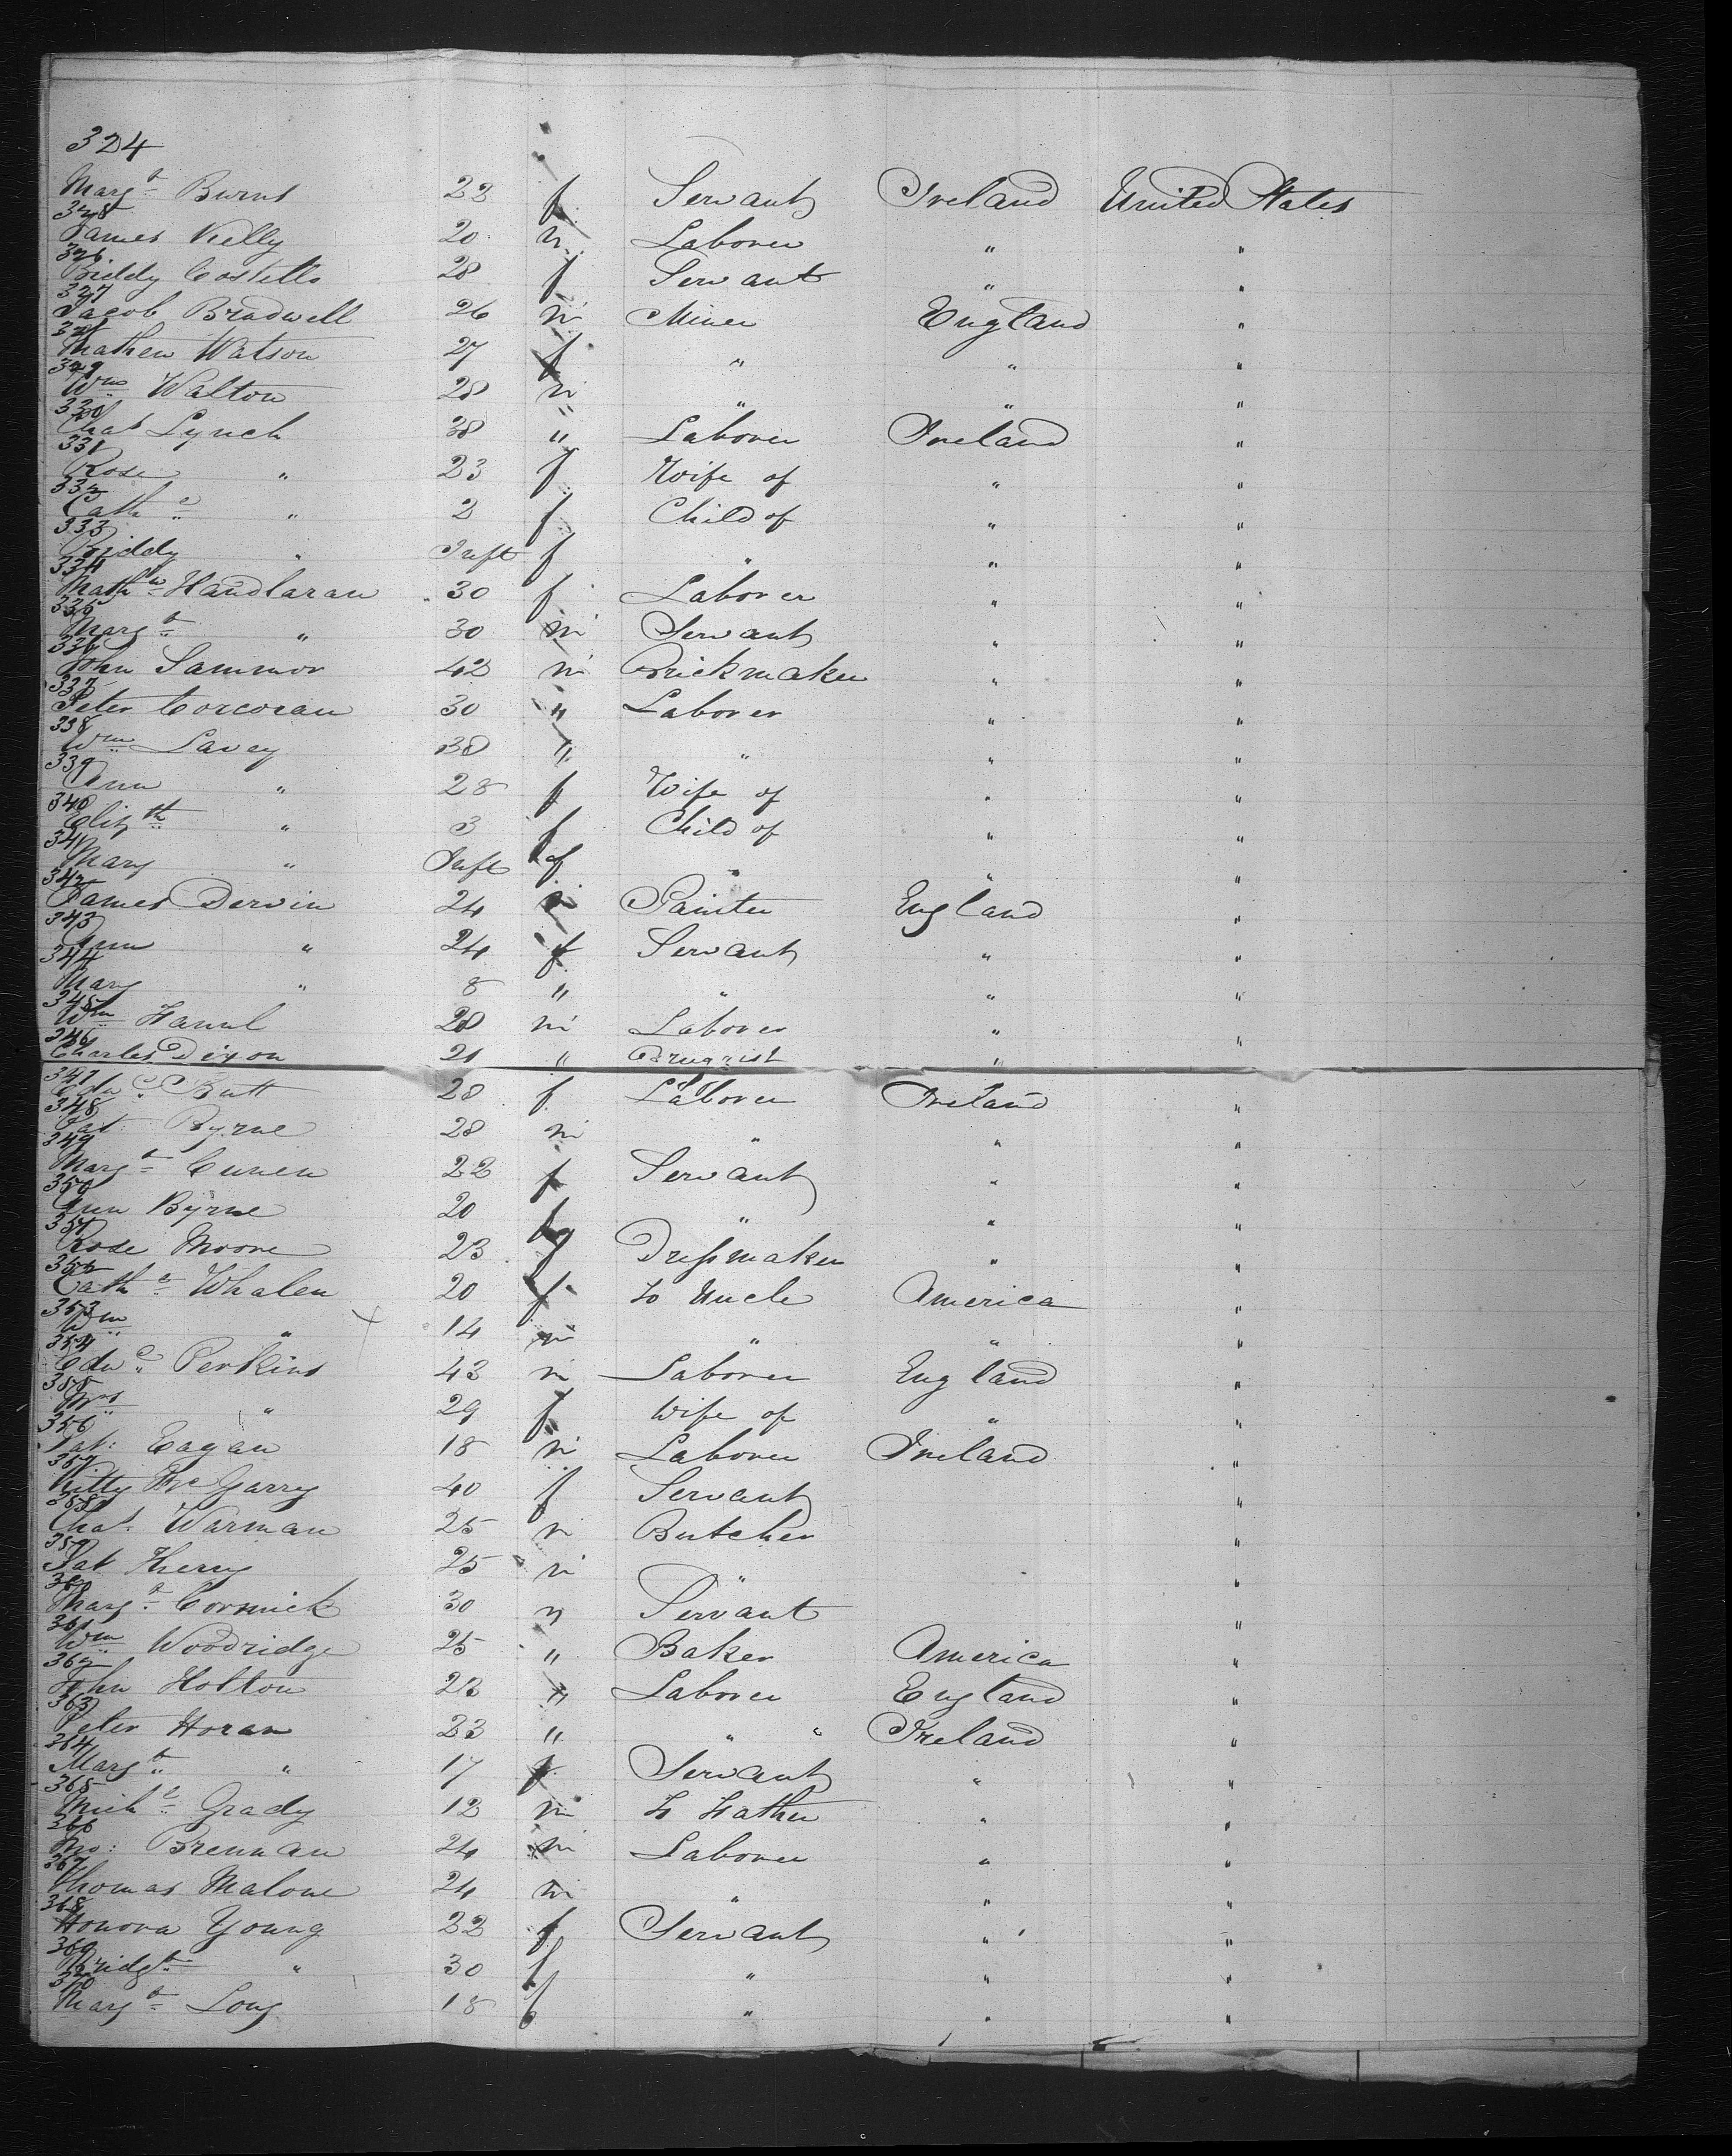 324
Margt Burns 22 f Servant Ireland United States
325
James Kelly 20 m Laborer " "
326
Biddy Costello 28 f Servant " "
327
Jacob Bradwell 26 m Miner England "
328
Mathew Watson 27 f " " "
329
Wm Walton 28 m " " "
330
Chas Lynch 38 " Laborer Ireland "
331
Rose " 23 f Wife of " "
332
Cathe " 2 f Child of " "
333
Biddy " Inft f " " "
334
Mathw Handlaran 30 f Laborer " "
335
Margt " 30 m Servant " "
336
John Sammor 42 m Brickmaker " "
337
Peter Corcoran 30 " Laborer " "
338
Wm Lavey 30 " " " "
339
Ann " 28 f Wife of " "
340
Elizth " 3 f Child of " "
341
Mary " Inft f " " "
342
James Dervin 24 m Painter England "
343
Ann " 24 f Servant " "
344
Mary " 8 " " " "
345
Wm 28 m Laborer " "
346
Charles Dixon 21 " Druggist " "
347
Edwd Butt 28 f Laborer Ireland "
348
Pat Byrne 28 m " " "
349
Margt Curren 22 f Servant " "
350
Ann Byrne 20 f " " "
351
Rose Moore 23 f Dressmaker " "
352
Cathe Whalen 20 f to Uncle America "
353
Wm " 14 m " " "
354
Edwd Perkins 43 m Laborer England "
355
Mrs " 29 f Wife of " "
356
Pat: Eagan 18 m Laborer Ireland "
357
Kitty McGarry 40 f Servant "
358
Chas. Warman 25 m Butcher "
359
Pat 25 m " "
360
Margt Cormick 30 m Servant "
361
Wm Woodridge 25 " Baker America "
362
John Holton 23 " Laborer England "
363
Peter Horan 23 " " " Ireland "
364
Margt " 17 f Servant " "
365
Michl Grady 12 m to Father " "
366
Brennan 24 m Laborer " "
367
Thomas Malone 24 m " " "
368
Honora Young 22 f Servant " "
369
Bridgt " 30 f " " "
370
Margt Long 18 f " " "